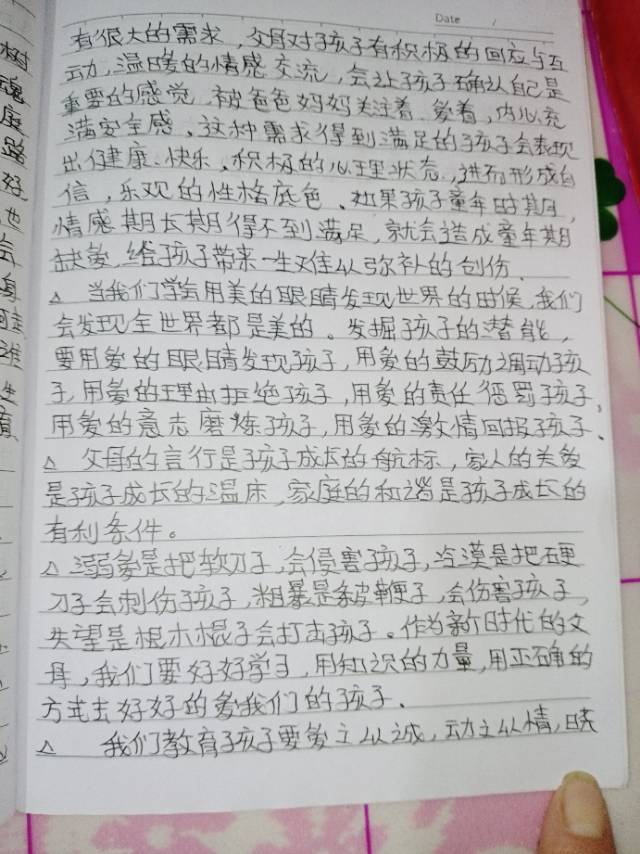 Date /
有很大的需求，父母对孩子有积极的回应与互
动，温暖的情感交流，会让孩子确认自己是
重要的感觉，被爸爸妈妈关注着、爱着，内心充
满安全感、这种需求得到满足的孩子会表现
出健康、快乐、积极的心理状态，进而形成自
信，乐观的性格底色、如果孩子童年时期，
情感期长期得不到满足，就会造成童年期
缺爱，给孩子带来一生难以弥补的创伤、
△ 当我们学会用美的眼睛发现世界的时候，我们
会发现全世界都是美的。发掘孩子的潜能，
要用爱的眼睛发现孩子，用爱的鼓励调动孩
子，用爱的理由拒绝孩子，用爱的责任惩罚孩子，
用爱的意志磨炼孩子，用爱的激情回报孩子、
△ 父母的言行是孩子成长的航标，家人的关爱
是孩子成长的温床，家庭的和谐是孩子成长的
有利条件。
△ 溺爱是把软刀子，会侵害孩子，冷漠是把硬
刀子会刺伤孩子，粗暴是条皮鞭子，会伤害孩子，
失望是根木棍子会打击孩子。作为新时代的父
母，我们要好好学习，用知识的力量，用正确的
方式去好好的爱我们的孩子、
△ 我们教育孩子要爱之以诚，动之以情，晓
树
魂
度
路
好
也
会
身
谁
生